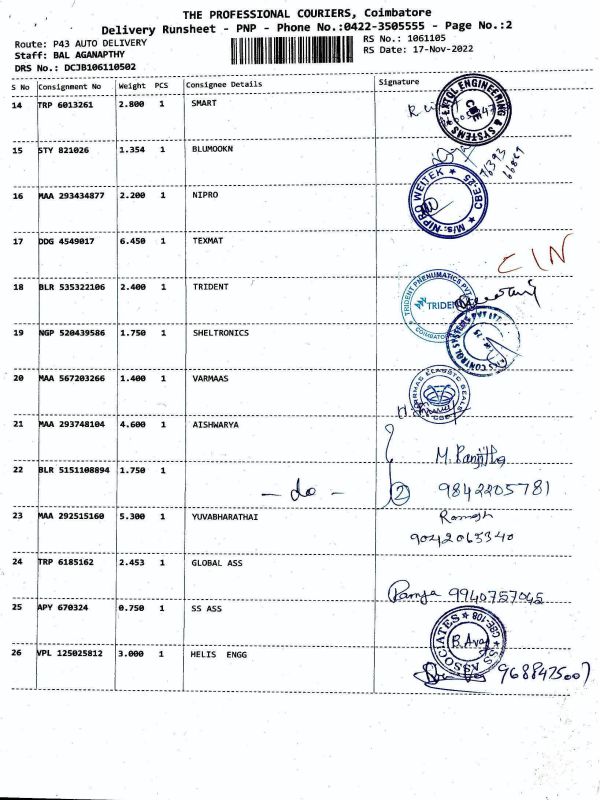 THE PROFESSIONAL COURIERS, Coimbatore
Delivery Runsheet - PNP - Phone No.:0422-3505555 - Page No.:2
Route: P43 AUTO DELIVERY
RS No.: 1061105
Staff: BAL AGANAPTHY
RS Date: 17-Nov-2022
DRS No.: DCJB106110502
S No Consignment No Weight PCS Consignee Details Signature
14 TRP 6013261 2.800 1 SMART
EXTOL ENGINEERING & SYSTEMS
15 STY 821026 1.354 1 BLUMOOKN
16 MAA 293434877 2.200 1 NIPRO
M/s. NIPRO WEITEK CBE-85
17 DDG 4549017 6.450 1 TEXMAT
18 BLR 535322106 2.400 1 TRIDENT
TRIDENT PNEUMATICS PVT
TRIDENT
COIMBATORE
19 NGP 520439586 1.750 1 SHELTRONICS
CONTROL SYSTEMS PVT LTD
20 MAA 567203266 1.400 1 VARMAAS
CLASSIC SEALS
21 MAA 293748104 4.600 1 AISHWARYA
M. Ranjitha
22 BLR 5151108894 1.750 1 - do - 2 9842205781
23 MAA 292515160 5.300 1 YUVABHARATHAI
Ramesh
9042063340
24 TRP 6185162 2.453 1 GLOBAL ASS
9940757045
25 APY 670324 0.750 1 SS ASS
SS ASSOCIATES CBE-108
26 VPL 125025812 3.000 1 HELIS ENGG